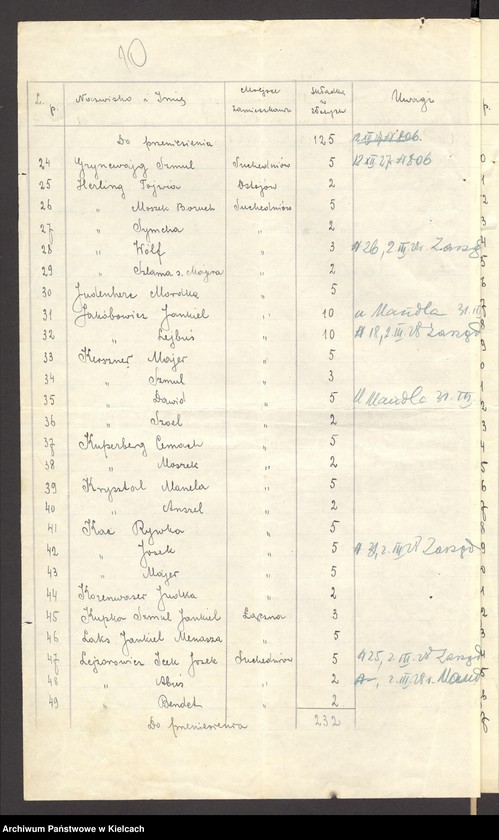 10
L. p. Nazwisko i Imię Miejsce zamieszkania Składka w złotych Uwagi
Do przeniesienia 125
24 Gryncwajg Szmul Suchedniów 5 12 XII 27 # 806
25 Herling Tojwia Ostojów 2
26 " Moszek Boruch Suchedniów 5
27 " Symcha " 2
28 " Wólf " 3 # 26, 2 III 28 Zarząd
29 " Szlama s. Majra " 2
30 Judenherc Mordka " 5
31 Jakóbowicz Jankiel " 10 u Mandla 31. III
32 " Lejbuś " 10 # 18, 2. III 28 Zarząd
33 Kerszner Majer " 5
34 " Szmul " 3
35 " Dawid " 5 u Mandla 31. III
36 " Szoel " 2
37 Kuperberg Cemach " 5
38 " Moszek " 2
39 Krysztal Manela " 5
40 " Anszel " 2
41 Kac Rywka " 5
42 " Josek " 5 2. III 28 Zarząd
43 " Majer " 5
44 Kozenwaser Judka " 2
45 Kupka Szmul Jankiel Łączna 3
46 Laks Jankiel Menasza " 5
47 Lejzorowicz Icek Josek Suchedniów 5 # 25, 2. III 28 Zarząd
48 " Abuś " 2 2. III 28 r. Mand
49 " Bendet " 2
Do przeniesienia 232
Archiwum Państwowe w Kielcach